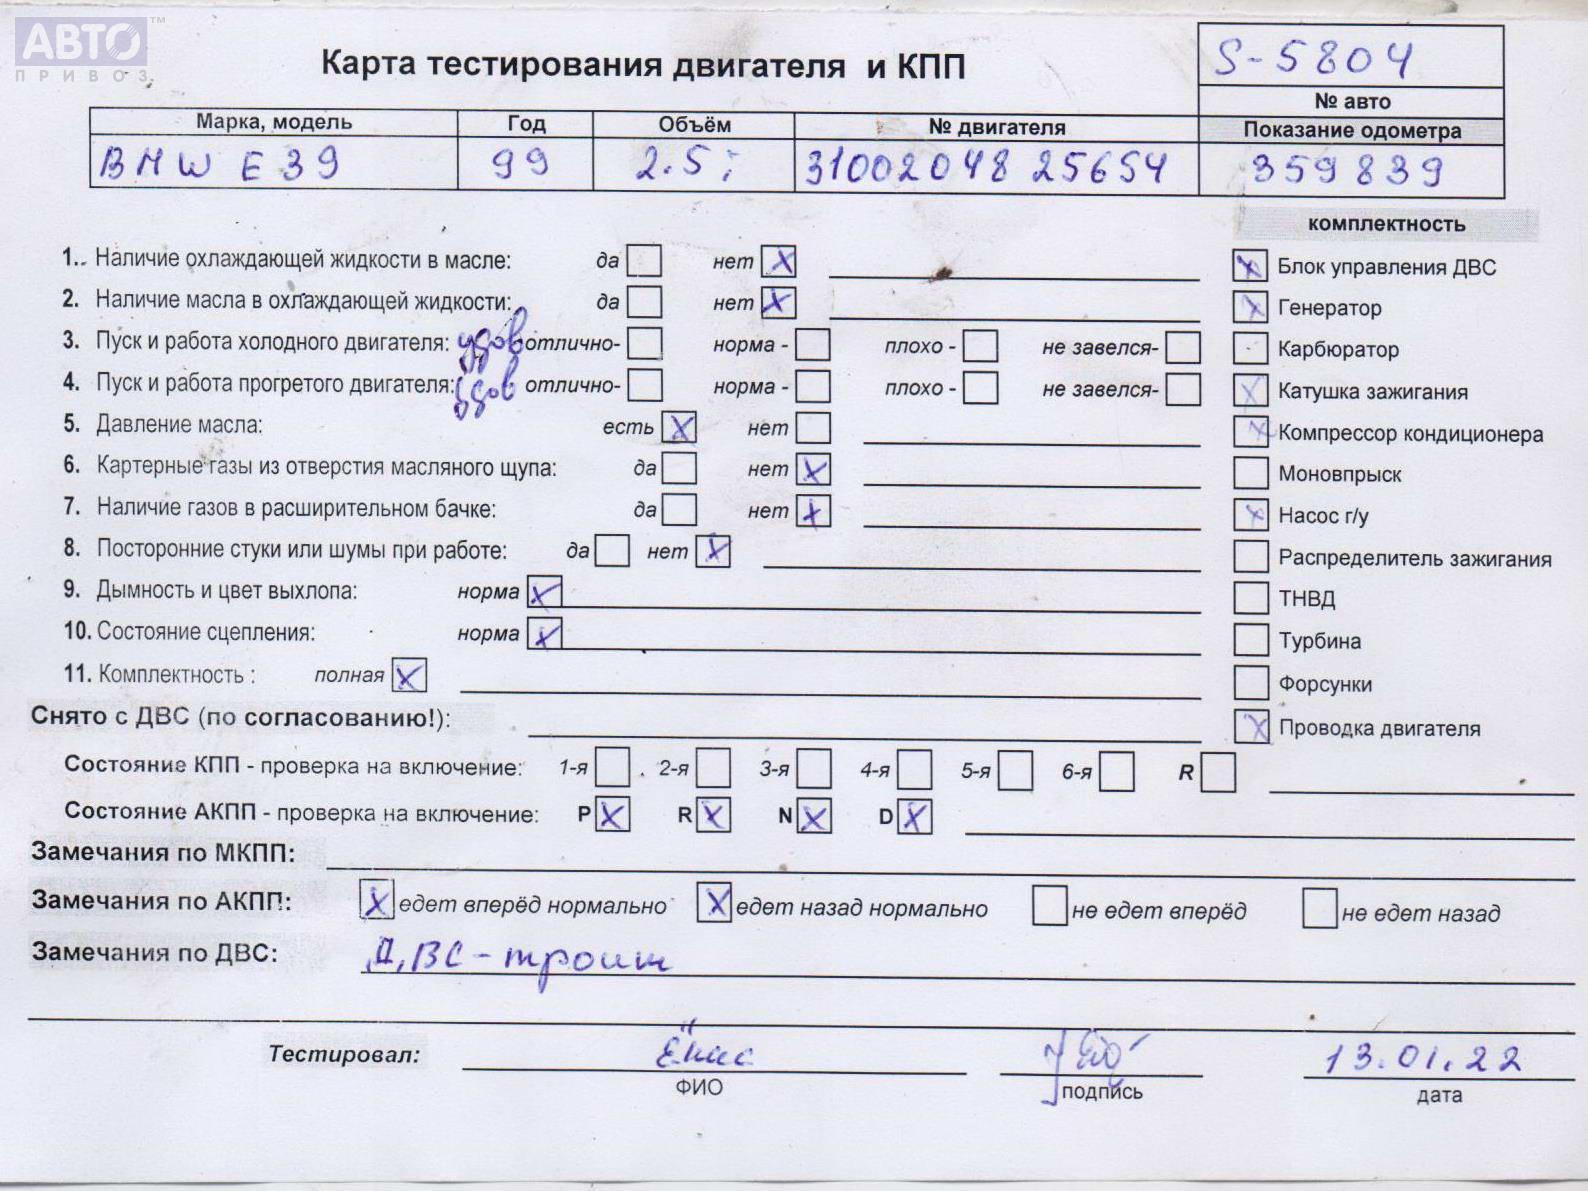 АВТО™
ПРИВОЗ
Карта тестирования двигателя и КПП
S-5804
№ авто
Марка, модель Год Объём № двигателя Показание одометра
BMW E39 99 2.5i 31002048 25654 359839
комплектность
1. Наличие охлаждающей жидкости в масле: да нет X
2. Наличие масла в охлаждающей жидкости: да нет X
3. Пуск и работа холодного двигателя: удов отлично- норма - плохо - не завелся-
4. Пуск и работа прогретого двигателя: удов отлично- норма - плохо - не завелся-
5. Давление масла: есть X нет
6. Картерные газы из отверстия масляного щупа: да нет X
7. Наличие газов в расширительном бачке: да нет X
8. Посторонние стуки или шумы при работе: да нет X
9. Дымность и цвет выхлопа: норма X
10. Состояние сцепления: норма X
11. Комплектность : полная X
X Блок управления ДВС
X Генератор
Карбюратор
X Катушка зажигания
X Компрессор кондиционера
Моновпрыск
X Насос г/у
Распределитель зажигания
ТНВД
Турбина
Форсунки
X Проводка двигателя
Снято с ДВС (по согласованию!):
Состояние КПП - проверка на включение: 1-я 2-я 3-я 4-я 5-я 6-я R
Состояние АКПП - проверка на включение: P X R X N X D X
Замечания по МКПП:
Замечания по АКПП: X едет вперёд нормально X едет назад нормально не едет вперёд не едет назад
Замечания по ДВС: ДВС - троит
Тестировал: 13.01.22
ФИО подпись дата